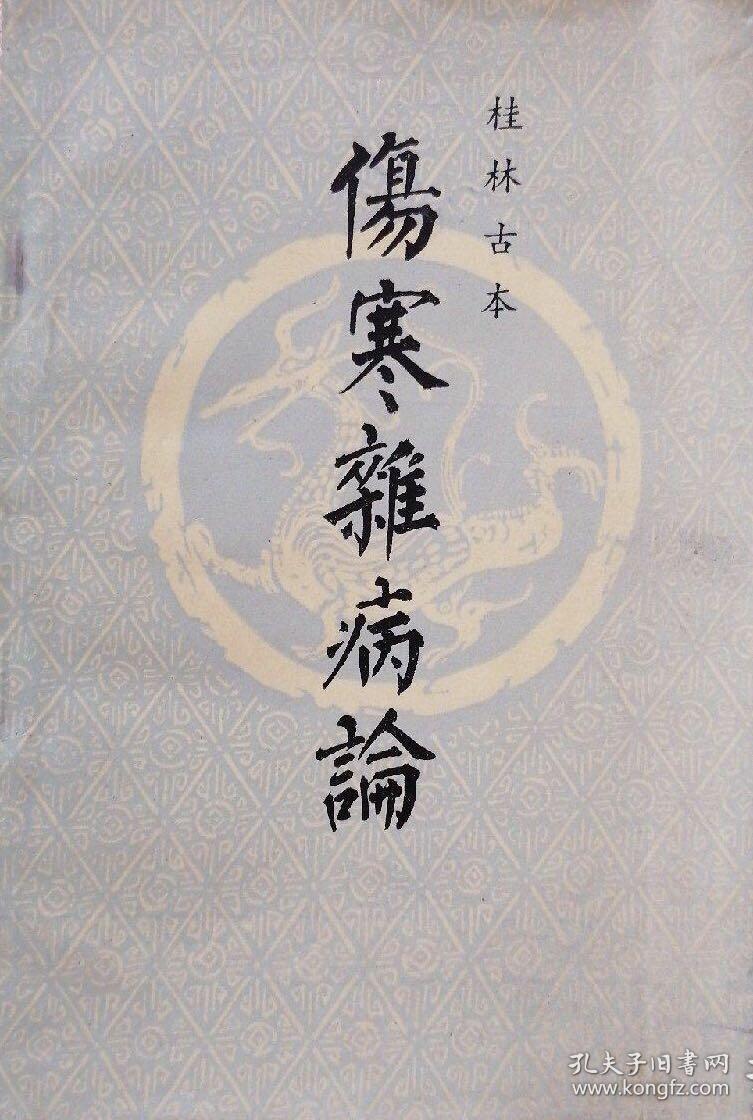 桂林古本
傷寒雜病論
孔夫子旧書网
www.kongfz.com